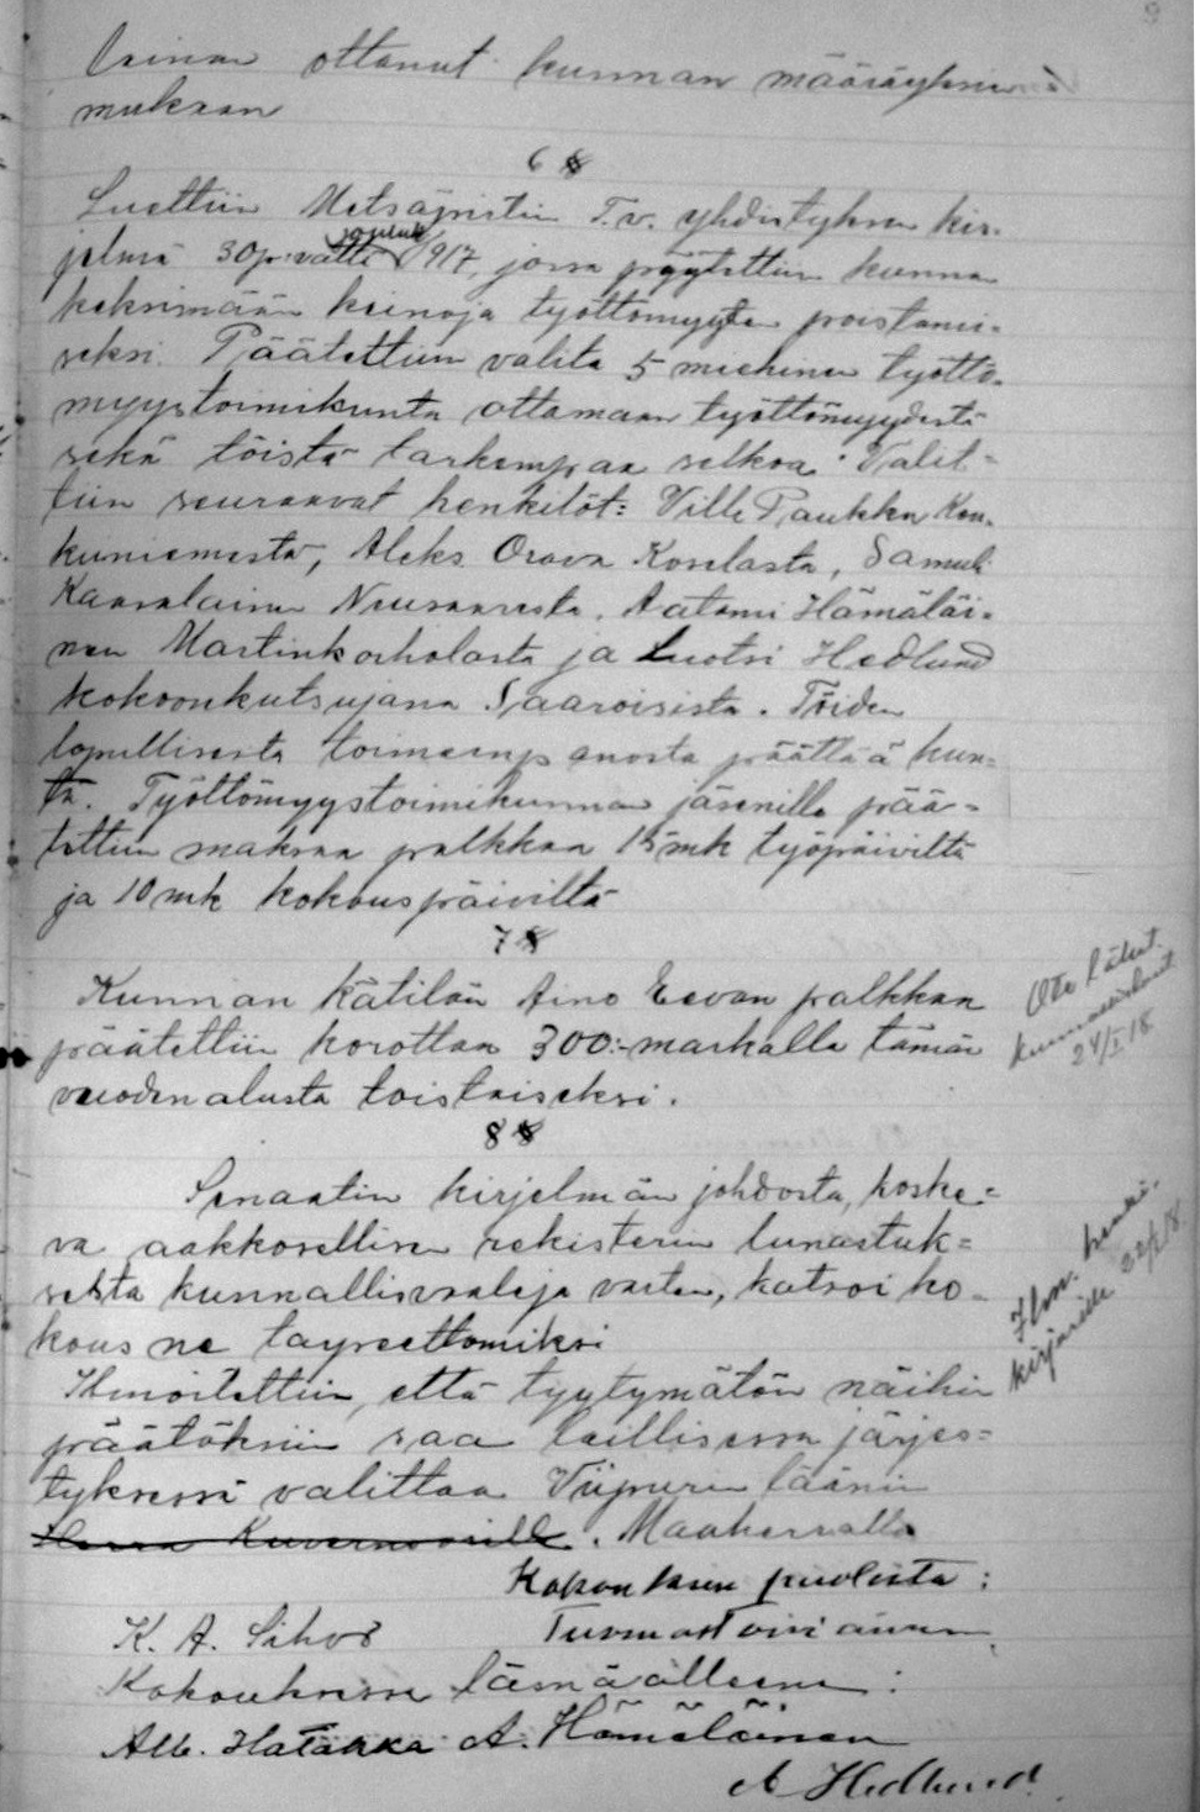 9
Vainaa ottanut kunnan määräyksien
mukaan
6 §
Luettiin Metsäpirtin T.v. yhdistyksen kir-
jelmä 30 p:vältä jouluk 1917, jossa pyytettiin kunnan
keksimään keinoja työttömyyden poistami-
seksi. Päätettiin valita 5 miehinen työttö-
myystoimikunta ottamaan työttömyydestä
sekä töistä tarkempaa selkoa. Valit-
tiin seuraavat henkilöt: Ville Paukku Kou-
kuniemestä, Aleks. Orava Koselasta, Samuli
Kaasalainen Neusaaresta, Aatami Hämäläi-
nen Martinkorholasta ja Luotsi Hedlund
kokoonkutsujana Saaroisista. Töiden
lopullisesta toimeenpanosta päättää kun-
ta. Työttömyystoimikunnan jäsenille pää-
tettiin maksaa palkkaa 15 mk työpäiviltä
ja 10 mk kokouspäiviltä
7 §
Kunnan kätilön Aino Eevan palkkaa
päätettiin korottaa 300:- markalla tämän
vuoden alusta toistaiseksi.
Ote lähet.
24/I 18
8 §
Senaatin kirjelmän johdosta, koske-
va aakkosellisen rekisterin lunastuk-
sesta kunnallisvaaleja varten, katsoi ko-
kous ne tarpeettomiksi
Ilm. henki-
kirjurille 22/I 18.
Ilmoitettiin, että tyytymätön näihin
päätöksiin saa laillisessa järjes-
tyksessä valittaa Viipurin läänin
Herra Kuvernöörille. Maaherralle
Kokouksen puolesta:
K. A. Sihvo Tuomas Toiviainen
Kokouksessa läsnäolleena:
Alb. Hatakka A. Hämäläinen
A Hedlund.